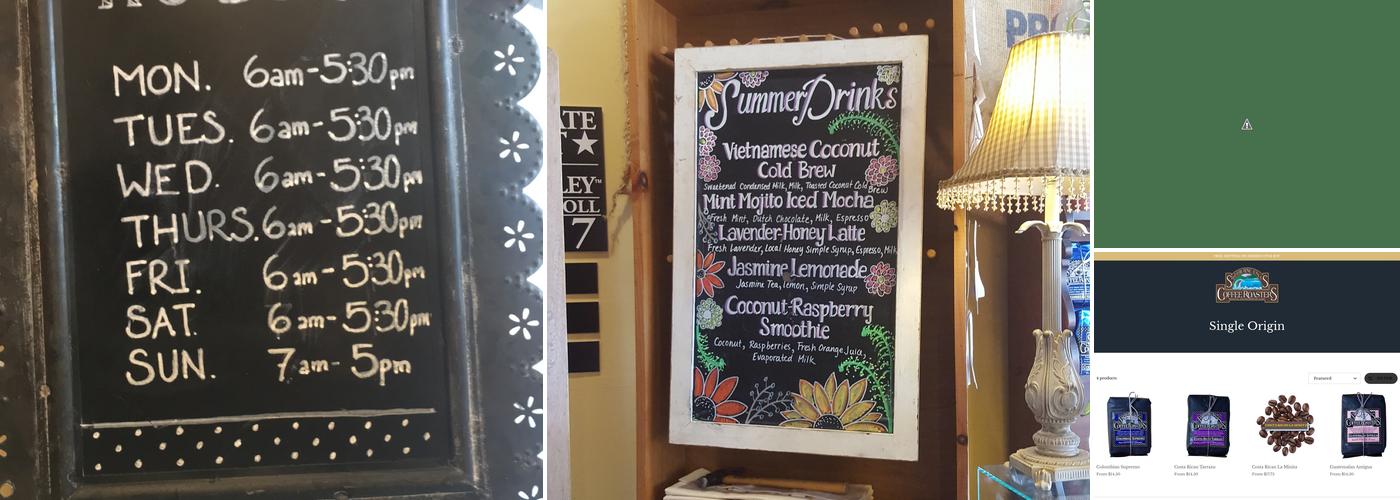 MON. 6am-5:30pm
TUES. 6am-5:30pm
WED. 6am-5:30pm
THURS. 6am-5:30pm
FRI. 6am-5:30pm
SAT. 6am-5:30pm
SUN. 7am-5pm
ATE
LEY™
OLL
7
Summer Drinks
Vietnamese Coconut
Cold Brew
Sweetened Condensed Milk, Milk, Toasted Coconut Cold Brew
Mint Mojito Iced Mocha
Fresh Mint, Dutch Chocolate, Milk, Espresso
Lavender-Honey Latte
Fresh Lavender, Local Honey Simple Syrup, Espresso, Milk
Jasmine Lemonade
Jasmine Tea, Lemon, Simple Syrup
Coconut-Raspberry
Smoothie
Coconut, Raspberries, Fresh Orange Juice,
Evaporated Milk
PRO
COFFEE ROASTERS
Single Origin
Featured
Colombian Supremo
Costa Rican Tarrazu
Costa Rican La Minita
Guatemalan Antigua